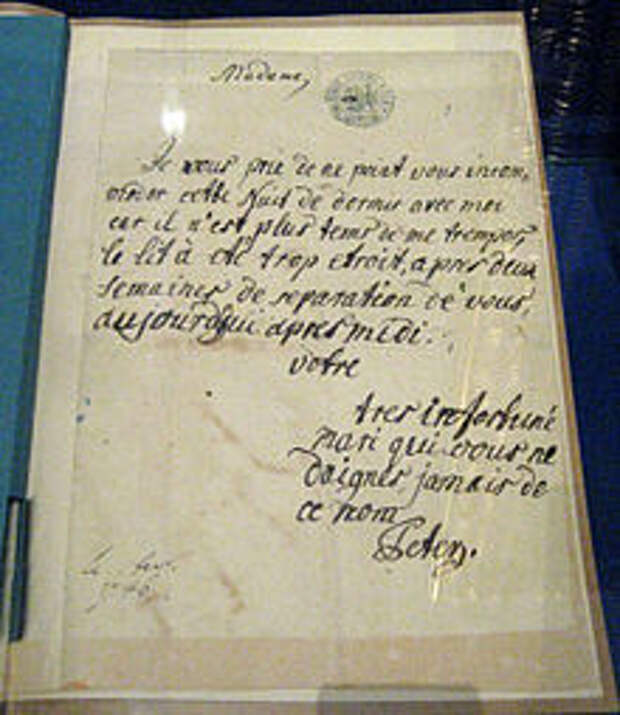 Madame,
Je vous prie de ne point vous incom,
oder cette Nuit de dormir avec moi
car il n'est plus tems de me tremper,
le lit à eté trop etroit, apres deux
semaines de separation de vous,
aujourdhui apres midi.
votre
tres infortuné
mari qui vous ne
daignez jamais de
ce nom
Peter.
le